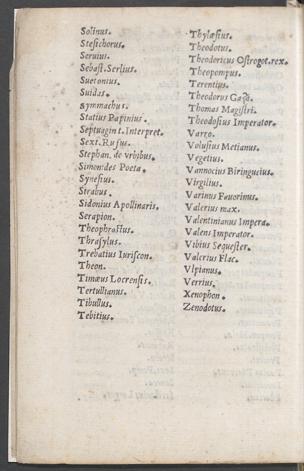 Solinus.
Stesichorus.
Seruius.
Sebast. Serlius.
Suetonius.
Suidas.
Symmachus.
Statius Papinius.
Septuagint. Interpret.
Sext. Rufus.
Stephan. de vrbibus.
Simonides Poeta.
Synesius.
Strabus.
Sidonius Apollinaris.
Serapion.
Theophrastus.
Thrasylus.
Trebatius Iuriscon.
Theon.
Timæus Locrensis.
Tertullianus.
Tibullus.
Tebitius.
Thylæsius.
Theodotus.
Theodoricus Ostrogot. rex.
Theopompus.
Terentius.
Theodorus
Thomas Magistri.
Theodosius Imperator.
Varro.
Volusius Metianus.
Vegetius.
Vannocius Biringucius.
Virgilius.
Varinus Fauorinus.
Valerius max.
Valentinianus Impera.
Valens Imperator.
Vibius Sequester.
Valerius Flac.
Vlpianus.
Verrius.
Xenophon.
Zenodotus.